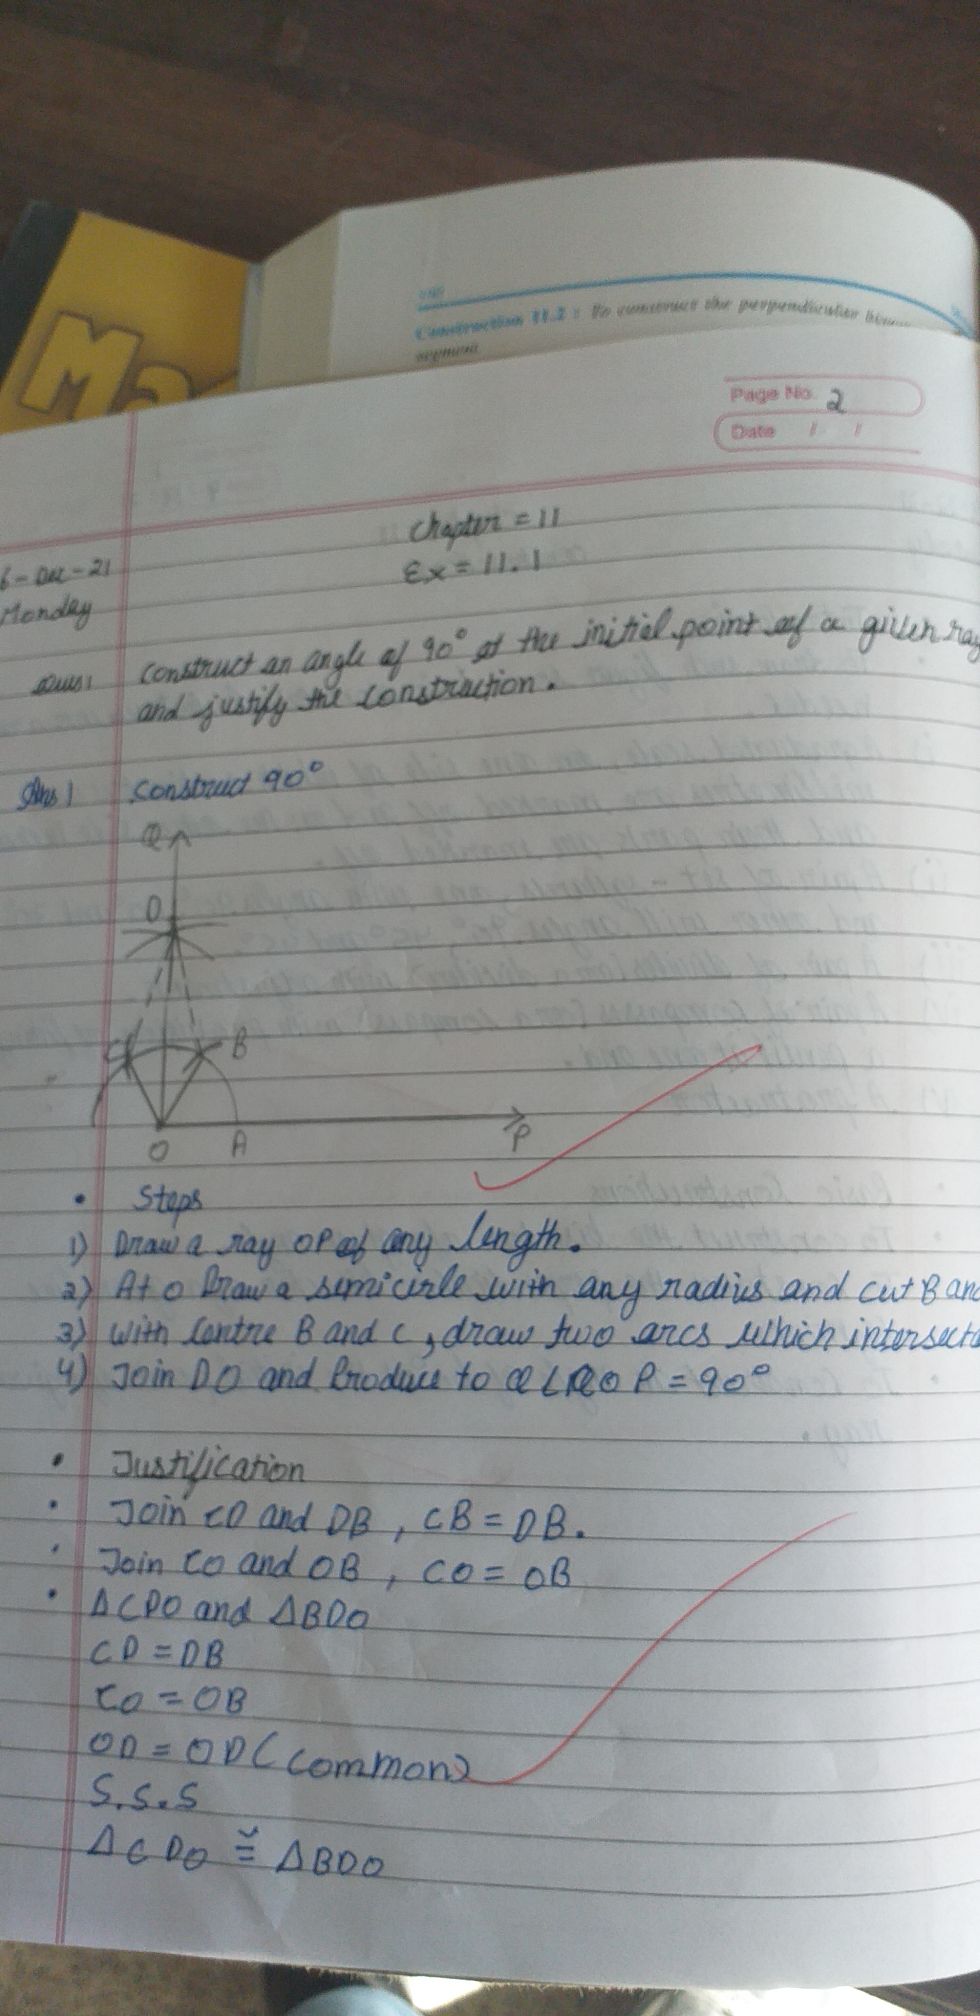 Ma
Construction 11.2 : To construct the perpendicular
segment
Page No. 2
Date / /
Chapter = 11
Ex = 11.1
6-Dec-21
Monday
Ques1 Construct an angle of 90° at the initial point of a given ray
and justify the construction.
Ans 1 Construct 90°
Q
D
C B
O A P
• Steps
1) Draw a ray OP of any length.
2) At O Draw a semicircle with any radius and cut B and
3) With Centre B and C, draw two arcs which intersects
4) Join DO and Produce to Q ∠QOP = 90°
• Justification
• Join CD and DB, CB = DB.
• Join CO and OB, CO = OB
• ΔCDO and ΔBDO
CD = DB
CO = OB
OD = OD (Common)
S.S.S
ΔCDO ≅ ΔBDO